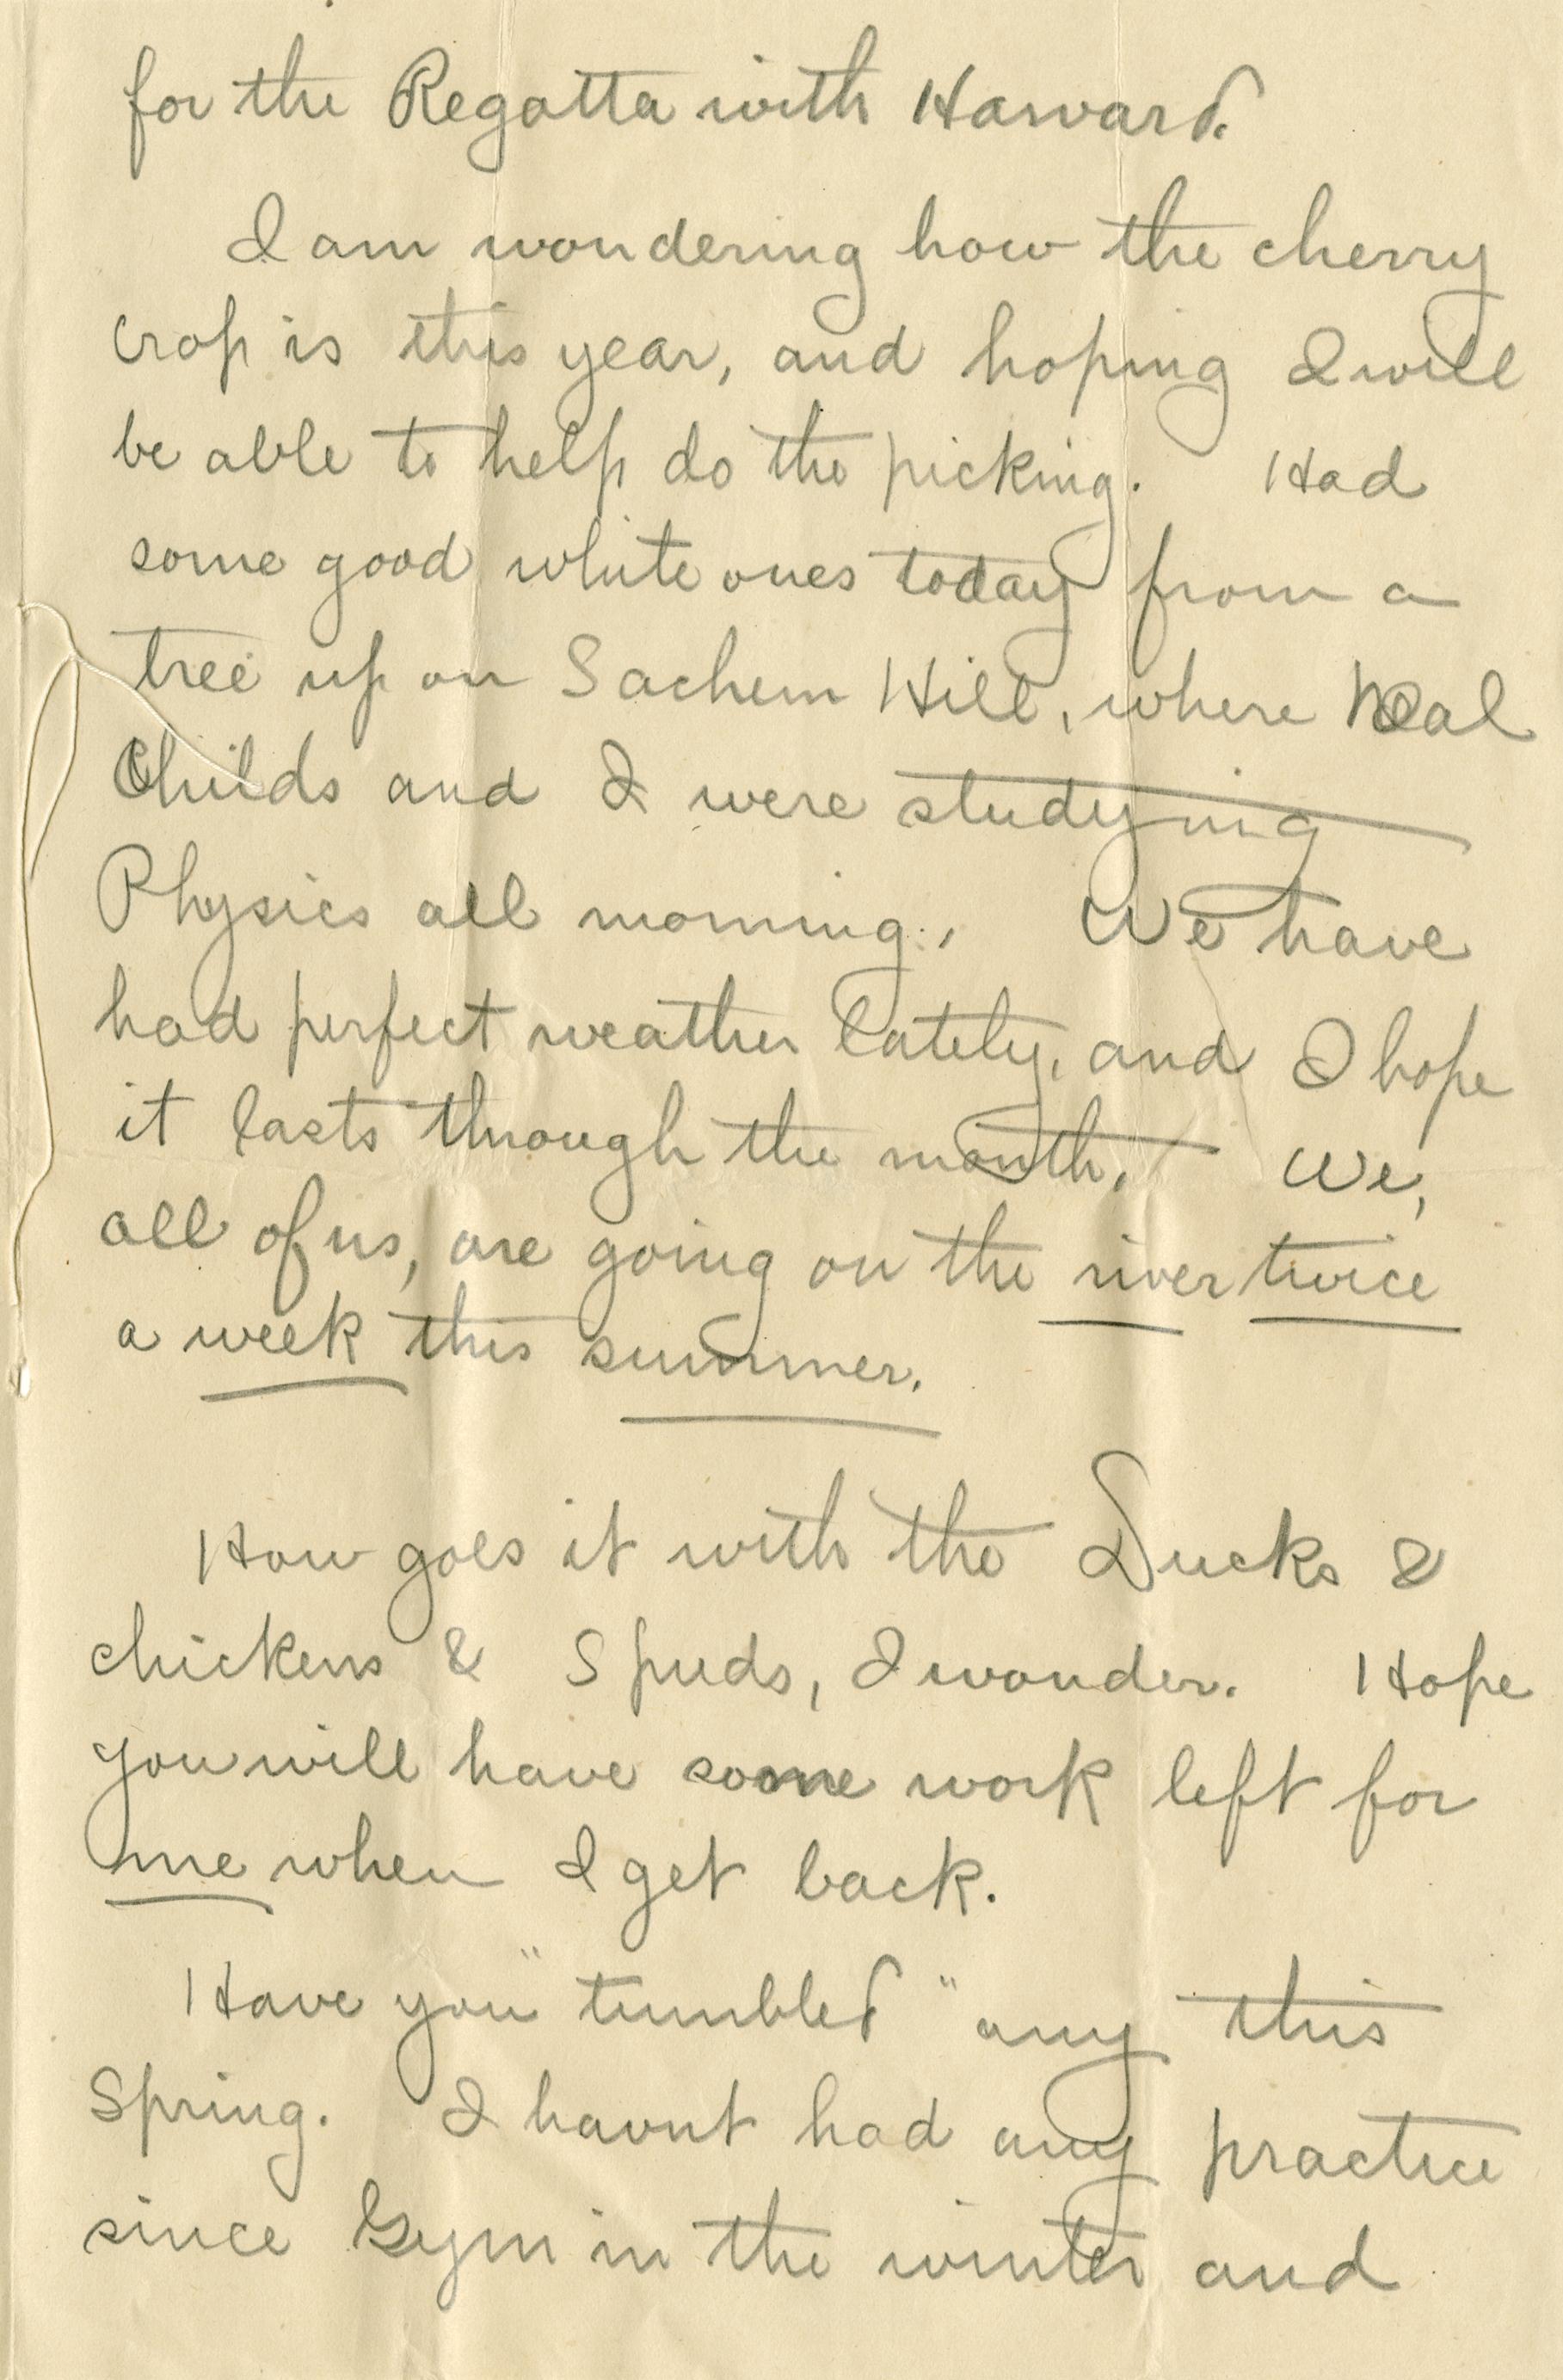 for the Regatta with Harvard.
I am wondering how the cherry
crop is this year, and hoping I will
be able to help do the picking. Had
some good white ones today from a
tree up on Sachem Hill, where Neal
Childs and I were studying
Physics all morning. We have
had perfect weather lately, and I hope
it lasts through the month. We,
all of us, are going on the river twice
a week this summer.
How goes it with the Ducks &
chickens & Spuds, I wonder. Hope
you will have some work left for
me when I get back.
Have you "tumbled" any this
Spring. I havnt had any practice
since Gym in the winter and